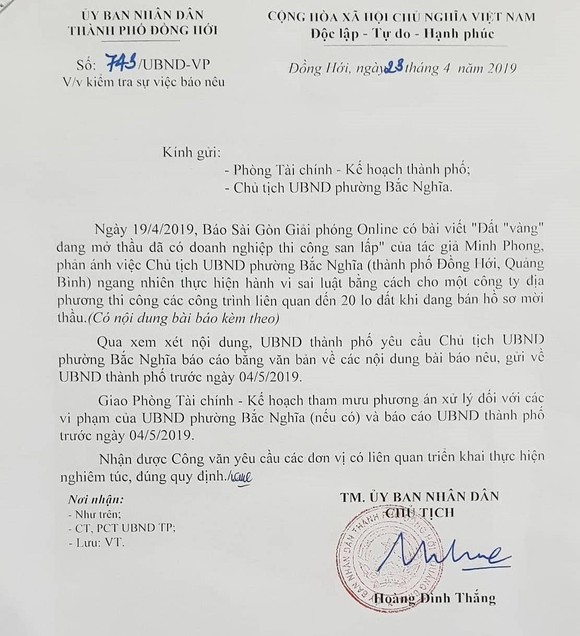 ỦY BAN NHÂN DÂN
THÀNH PHỐ ĐỒNG HỚI
CỘNG HÒA XÃ HỘI CHỦ NGHĨA VIỆT NAM
Độc lập - Tự do - Hạnh phúc
Số: 743/UBND-VP
V/v kiểm tra sự việc báo nêu
Đồng Hới, ngày 23 tháng 4 năm 2019
Kính gửi:
- Phòng Tài chính - Kế hoạch thành phố;
- Chủ tịch UBND phường Bắc Nghĩa.
Ngày 19/4/2019, Báo Sài Gòn Giải phóng Online có bài viết "Đất "vàng"
đang mở thầu đã có doanh nghiệp thi công san lấp" của tác giả Minh Phong,
phản ánh việc Chủ tịch UBND phường Bắc Nghĩa (thành phố Đồng Hới, Quảng
Bình) ngang nhiên thực hiện hành vi sai luật bằng cách cho một công ty địa
phương thi công các công trình liên quan đến 20 lo đất khi đang bán hồ sơ mời
thầu.(Có nội dung bài báo kèm theo)
Qua xem xét nội dung, UBND thành phố yêu cầu Chủ tịch UBND
phường Bắc Nghĩa báo cáo bằng văn bản về các nội dung bài báo nêu, gửi về
UBND thành phố trước ngày 04/5/2019.
Giao Phòng Tài chính - Kế hoạch tham mưu phương án xử lý đối với các
vi phạm của UBND phường Bắc Nghĩa (nếu có) và báo cáo UBND thành phố
trước ngày 04/5/2019.
Nhận được Công văn yêu cầu các đơn vị có liên quan triển khai thực hiện
nghiêm túc, đúng quy định./.
Nơi nhận:
- Như trên;
- CT, PCT UBND TP;
- Lưu: VT.
TM. ỦY BAN NHÂN DÂN
CHỦ TỊCH
Hoàng Đình Thắng